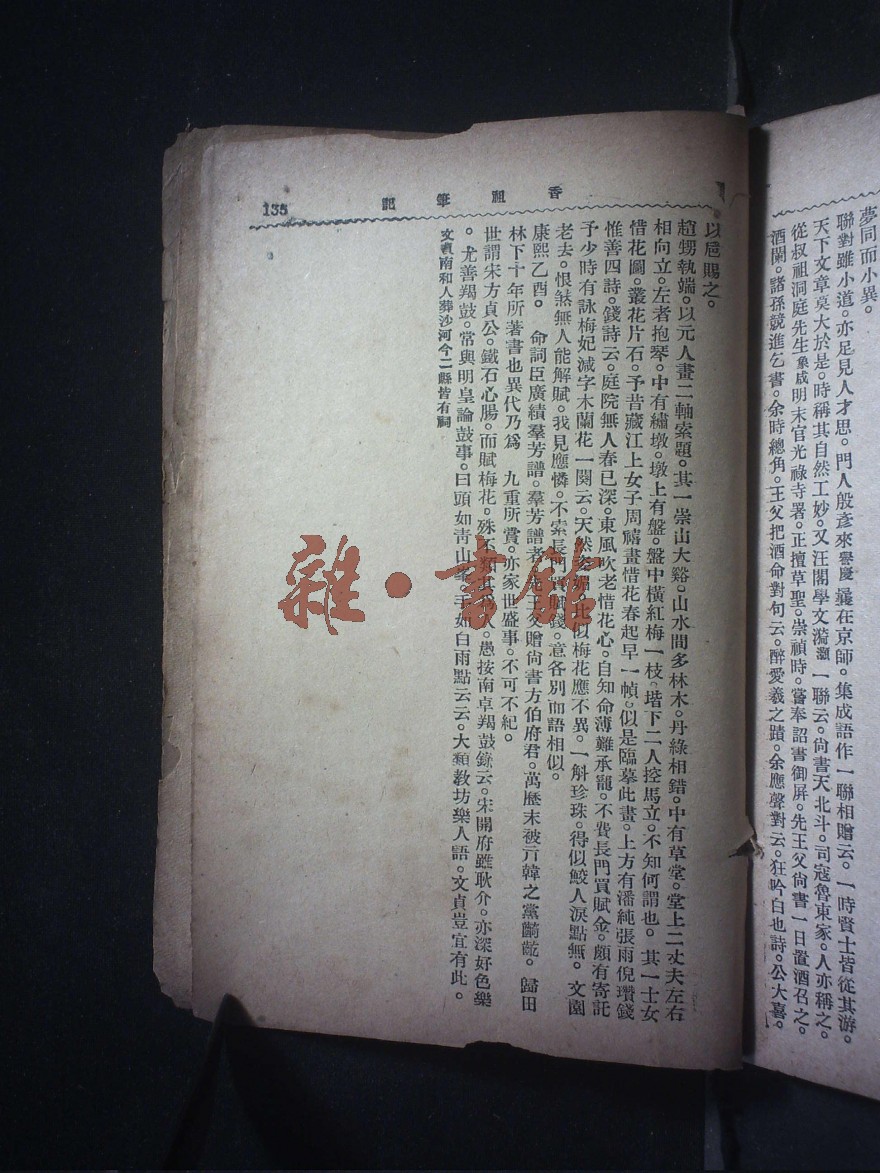 夢同而小異。
聯對雖小道。亦足見人才思。門人殷彥來譽慶曩在京師。集成語作一聯相贈云。一時賢士皆從其游。
天下文章莫大於是。時稱其自然工妙。又汪閣學文漪灝一聯云。尙書天北斗。司寇魯東家。人亦稱之。
從叔祖洞庭先生象成明末官光祿寺署。正擅草聖。崇禎時。嘗奉詔書御屏。先王父尙書一日置酒召之。
酒闌。諸孫競進乞書。余時總角。王父把酒命對句云。醉愛羲之蹟。余應聲對云。狂吟白也詩。公大喜。
香祖筆記
135
以卮賜之。
趙甥執端。以元人畫二軸索題。其一崇山大谿。山水間多林木。丹綠相錯。中有草堂。堂上二丈夫左右
相向立。左者抱琴。中有繡墩。墩上有盤。盤中橫紅梅一枝。堦下二人控馬立。不知何謂也。其一士女
惜花圖。叢花片石。予昔藏江上女子周禧畫惜花春起早一幀。似是臨摹此畫。上方有潘純張雨倪瓚錢
惟善四詩。錢詩云。庭院無人春已深。東風吹老惜花心。自知命薄難承寵。不費長門買賦金。頗有寄託
予少時有詠梅妃減字木蘭花一闋云。天然姿媚。比似梅花應不異。一斛珍珠。得似鮫人淚點無。文園
老去。恨煞無人能解賦。我見應憐。不索長門買賦錢。意各別而語相似。
康熙乙酉。命詞臣廣續羣芳譜。羣芳譜者先王父贈尙書方伯府君。萬歷末被亓韓之黨齮齕。歸田
林下十年所著書也異代乃爲九重所賞。亦家世盛事。不可不紀。
世謂宋方貞公。鐵石心腸。而賦梅花。殊不類其爲人。愚按南卓羯鼓錄云。宋開府雖耿介。亦深好色樂
。尤善羯鼓。常與明皇論鼓事。曰頭如靑山峯。手如白雨點云云。大類敎坊樂人語。文貞豈宜有此。
文貞南和人葬沙河今二縣皆有祠
雜·書館